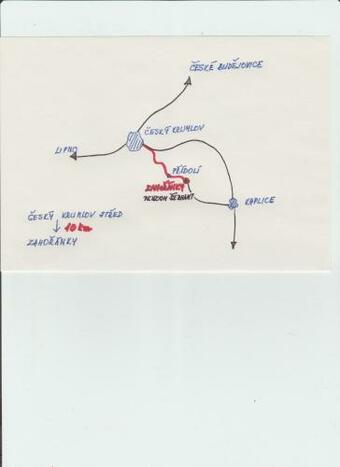 ČESKÉ BUDĚJOVICE
ČESKÝ KRUMLOV
LIPNO
PŘÍDOLÍ
ZAHOŘÁNKY
PENZION
KAPLICE
ČESKÝ KRUMLOV STŘED
↓ 10 km
ZAHOŘÁNKY